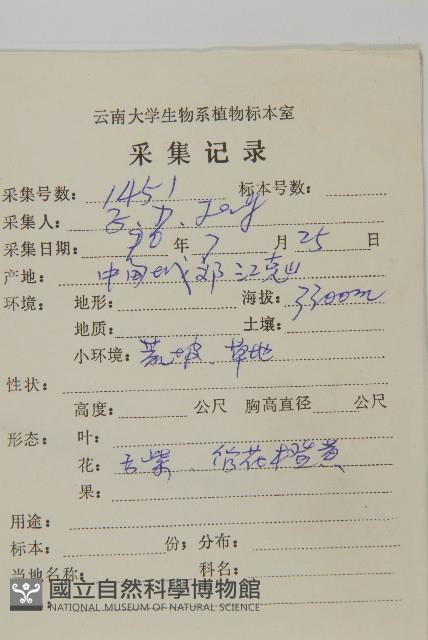 云南大学生物系植物标本室
采集记录
采集号数: 1451 标本号数:
采集人:
采集日期: 90 年 7 月 25 日
产地: 中国
环境: 地形: 海拔: 3300m
地质: 土壤:
小环境: 荒坡、草地
性状:
高度: 公尺 胸高直径 公尺
形态: 叶:
花: 舌紫、管花橙黄
果:
用途:
标本: 份; 分布:
当地名称: 科名:
國立自然科學博物館
NATIONAL MUSEUM OF NATURAL SCIENCE